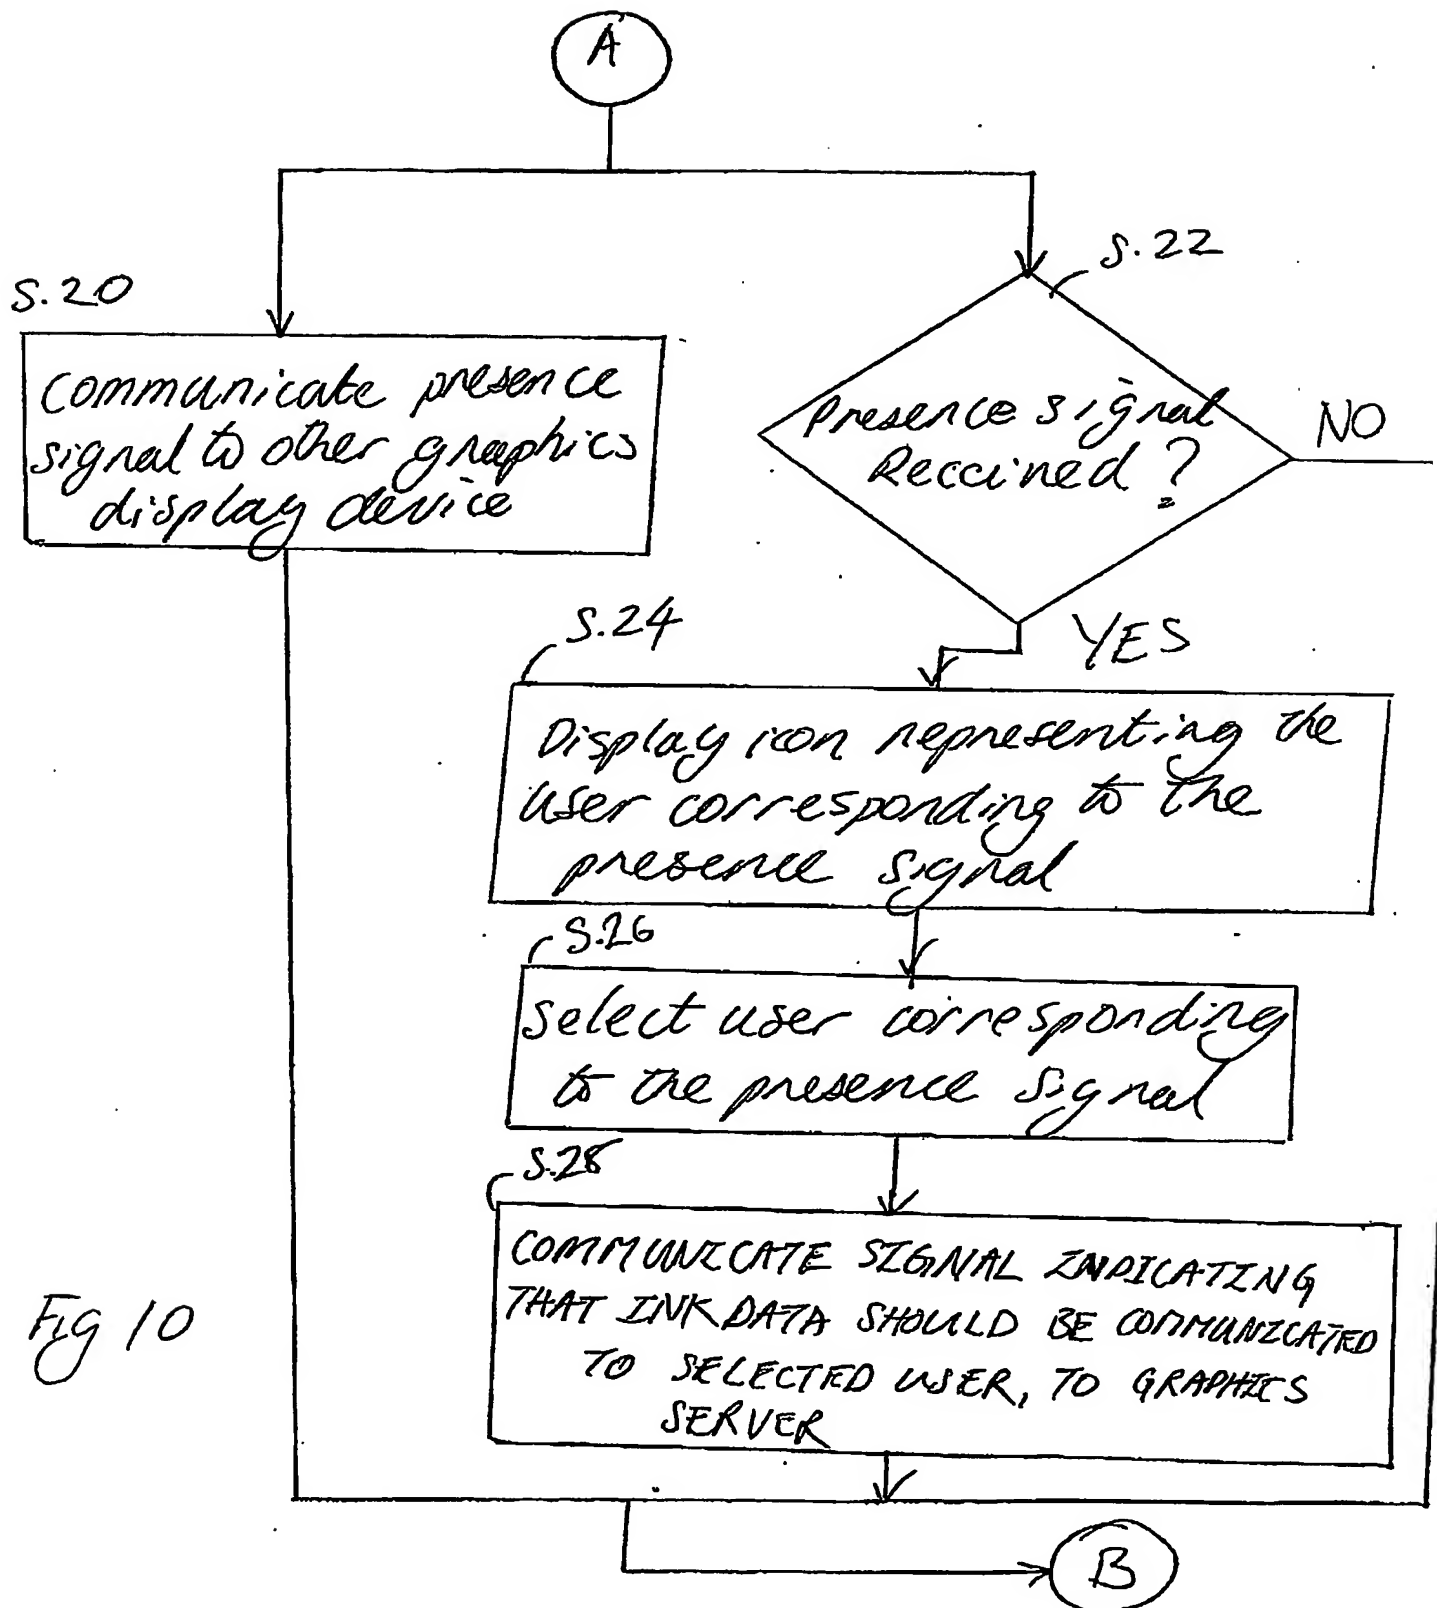 A
S.20
S.22
Communicate presence
signal to other graphics
display device
Presence signal
Received?
NO
YES
S.24
Display icon representing the
user corresponding to the
presence signal
S.26
Select user corresponding
to the presence signal
S.28
COMMUNICATE SIGNAL INDICATING
THAT INK DATA SHOULD BE COMMUNICATED
TO SELECTED USER, TO GRAPHICS
SERVER
Fig 10
B